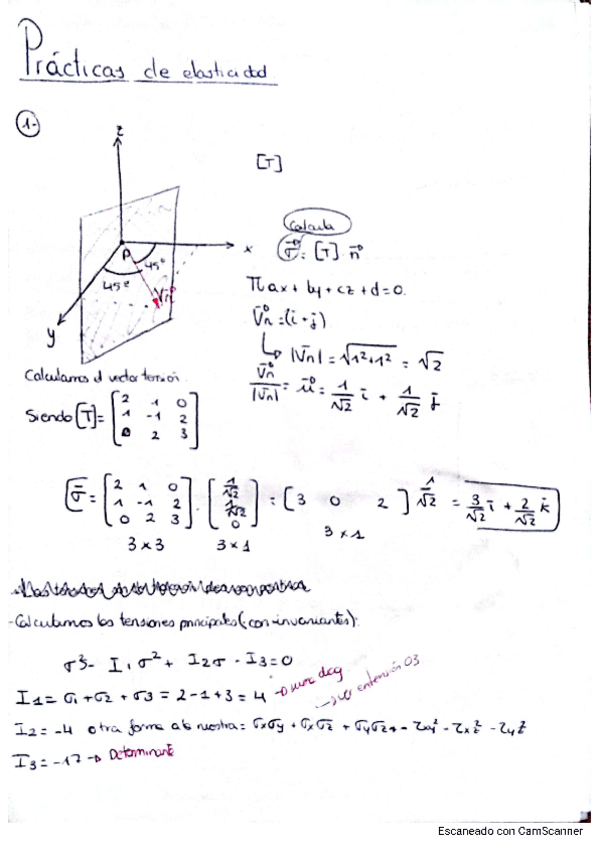 Prácticas de elasticidad
1-
z
[T]
Calcula
σ⃗ = [T] · n⃗
P
x
45º
45º
Vn
y
π ax + by + cz + d = 0.
V⃗n = (i + j)
↳ |Vn| = √(1² + 1²) = √2
V⃗n / |Vn| = u⃗ = 1/√2 i + 1/√2 j
Calculamos el vector tensión.
Siendo [T] = [2 1 0; 1 -1 2; 0 2 3]
σ̄ = [2 1 0; 1 -1 2; 0 2 3] · [1/√2; 1/√2; 0] = [3 0 2] 1/√2 = 3/√2 i + 2/√2 k
3x3 3x1 3x1
- Calculamos las tensiones principales (con invariantes):
σ³ - I1 σ² + I2 σ - I3 = 0
I1 = σ1 + σ2 + σ3 = 2 - 1 + 3 = 4 → suma diag
→ ver en tensión 03
I2 = -4 otra forma ab nuestra = σxσy + σxσz + σyσz - τxy² - τxz² - τyz²
I3 = -17 → Determinante
Escaneado con CamScanner